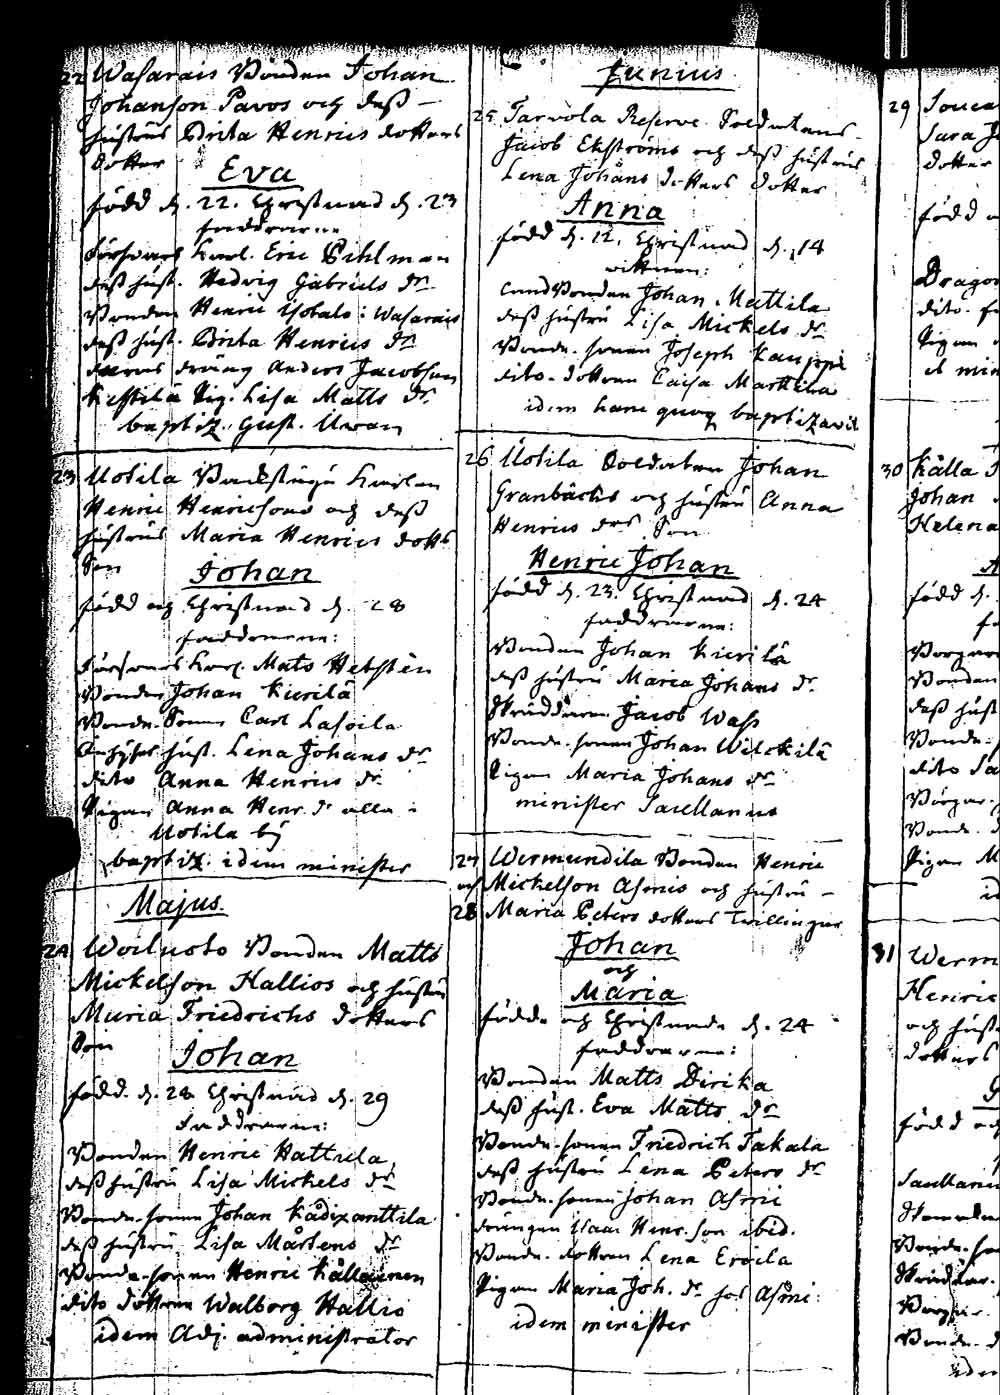 22 Wasarais Bonden Johan
Johanson Pavos och dess
hustrus Brita Henrics dotters
dotter
Eva
född d. 22. Christnad d. 23
faddrarne
Försvars Karl. Eric Pihlman
dess hust. Hedvig Gabriels dr
Bonden Henric Isotalo i Wasarais
dess hust. Brita Henrics dr
dräng Anders Jacobson
Kestilä Pig. Lisa Matts dr
baptiz. Gust. Uran
23 Uotila Backstugu Karlen
Henric Henricsons och dess
hustrus Maria Henrics dotts
Son
Johan
född och Christnad d. 28
faddrarne:
Försvars Karl Mats Hebstén
Bonden Johan Kierilä
Bonde-Sonen Carl Lassila
hust. Lena Johans dr
dito Anna Henrics dr
Pigan Anna Henr. dr alla i
Uotila by
baptiz. idem minister
Majus.
24 Woiluoto Bonden Matts
Mickelson Hallios och hustru
Maria Friedrichs dotters
Son
Johan
född. d. 28 Christnad d. 29
Faddrarne:
Bonden Henric Hattula
dess hustru Lisa Mickels dr
Bonde-sonen Johan Kådixanttila
dess hustru Lisa Mårtens dr
Bonde-sonen Henric Källainen
dito dottren Walborg Hallio
idem Adj. administrator
Junius
25 Tarvola Reserve Soldatens
Jacob Ekströms och dess hustrus
Lena Johans dotters dotter
Anna
född d. 12. Christnad d. 14
vittnen:
Landbonden Johan Mattila
dess hustru Lisa Mickels dr
Bonde-sonen Joseph Kauppi
dito-dottren Caisa Marttila
idem hanc quoq baptizavit
26 Uotila Soldaten Johan
Granbäcks och hustru Anna
Henrics drs Son
Henric Johan
född d. 23. Christnad d. 24
faddrarne:
Bonden Johan Kierilä
dess hustru Maria Johans dr.
Skräddaren Jacob Wass
Bonde-sonen Johan Wilckilä
Pigan Maria Johans dr
minister Sacellanus
27 Wermundila Bonden Henric
och Mickelson Asmis och hustru
28 Maria Peters dotters Twillingar
Johan
och
Maria
födde och Christnade d. 24
faddrarne:
Bonden Matts Dirika
dess hust. Eva Matts dr
Bonde-sonen Friedrich Takala
dess hustru Lena Peters dr
Bonde-sonen Johan Asmi
drängen Isaac Henr. son ibid.
Bonde-dottren Lena Ervila
Pigan Maria Joh. dr hos Asmi.
idem minister
29
Sara
dotter
född
Dragon
dito
Pigan
30 Källa
Johan
Helena
född d.
Bonden
dess hust
Bonde
dito
Bonde
Pigan M
31 Werm
Henric
och hust
dotters
född och
Sacellanu
Bonde-so
Bonde-d